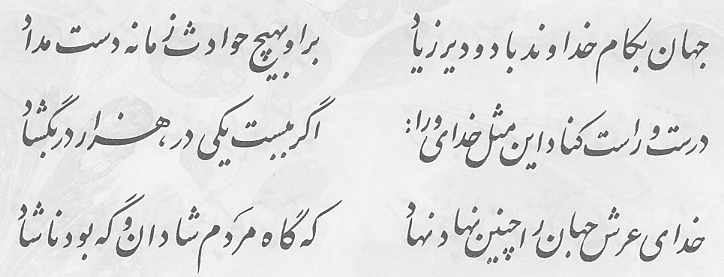 جهان بکام خداوند باد و دیر زیاد برو بهیچ حوادث زمانه دست مداد
درست و راست کناد این مثل خدای ورا: اگر ببست یکی در، هزار در بگشاد
خدای عرش جهان را چنین نهاد نهاد که گاه مردم شادان و گه بود ناشاد